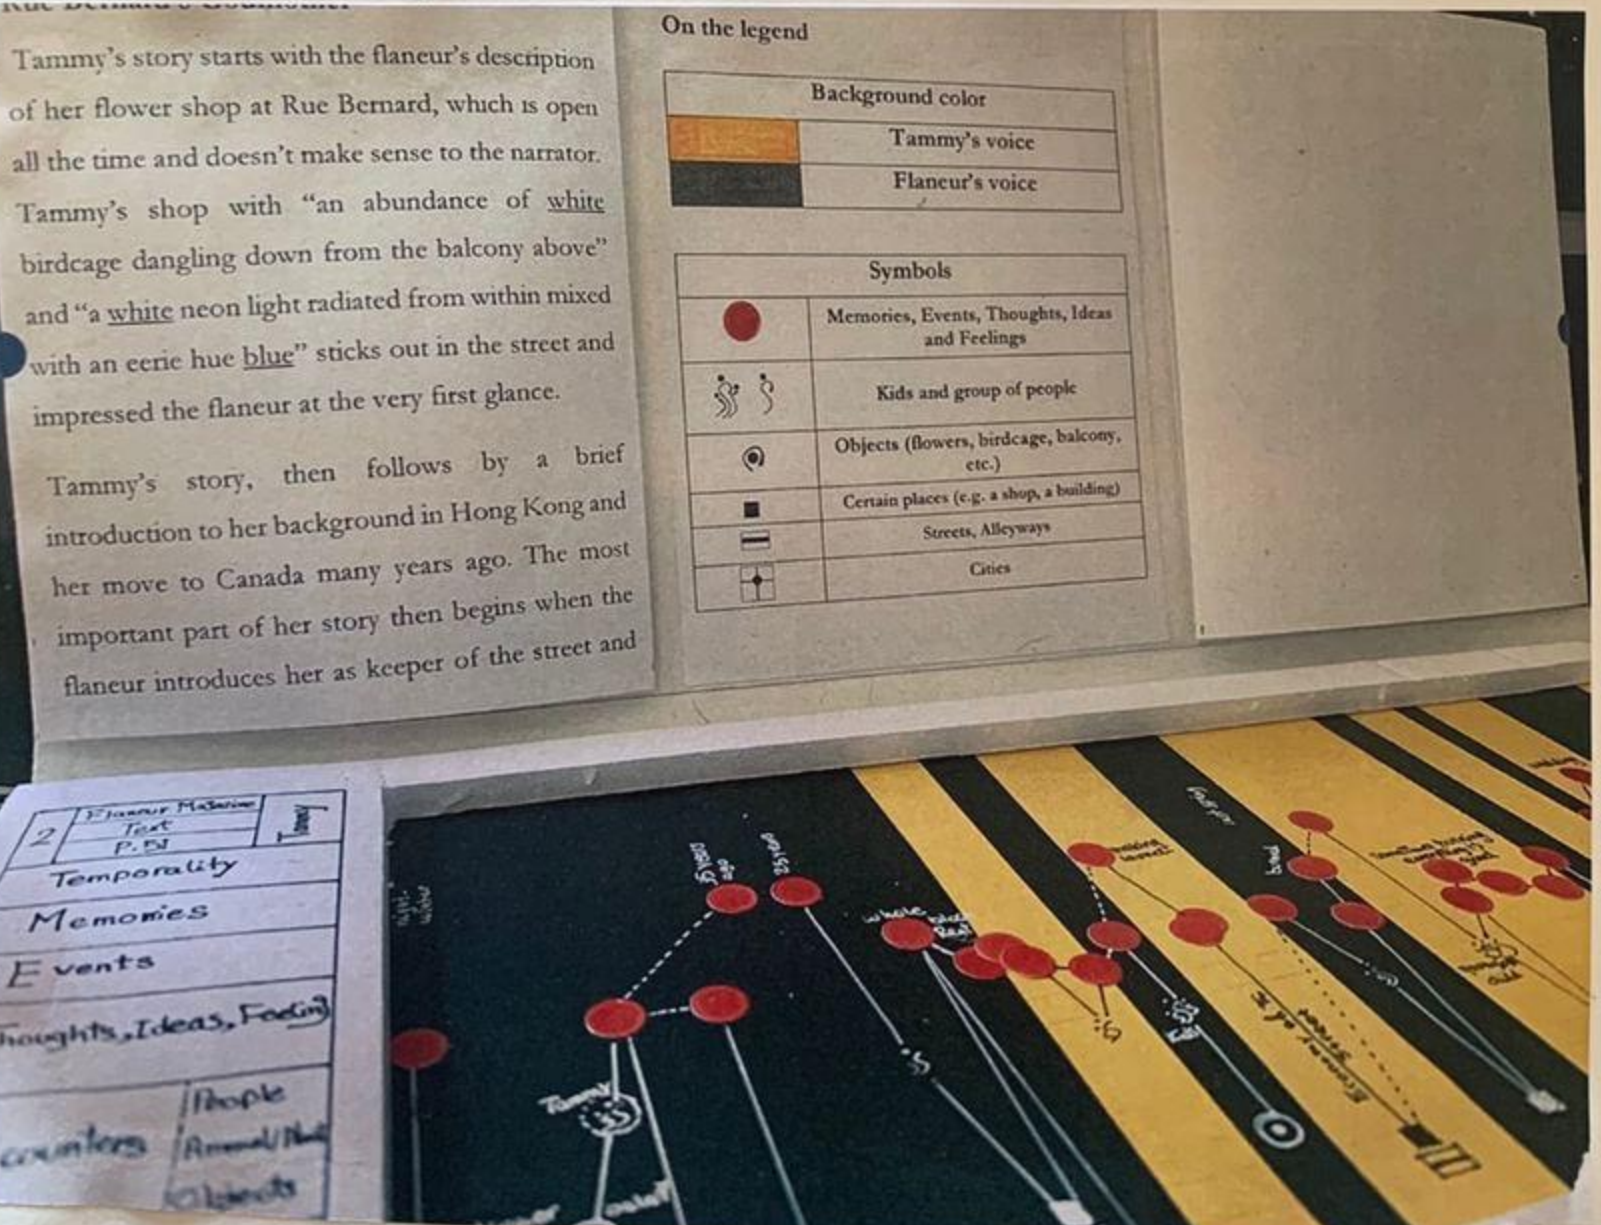 Rue Bernard's Godmother
Tammy's story starts with the flaneur's description
of her flower shop at Rue Bernard, which is open
all the time and doesn't make sense to the narrator.
Tammy's shop with "an abundance of white
birdcage dangling down from the balcony above"
and "a white neon light radiated from within mixed
with an eerie hue blue" sticks out in the street and
impressed the flaneur at the very first glance.
Tammy's story, then follows by a brief
introduction to her background in Hong Kong and
her move to Canada many years ago. The most
important part of her story then begins when the
flaneur introduces her as keeper of the street and
On the legend
Background color
Tammy's voice
Flaneur's voice
Symbols
Memories, Events, Thoughts, Ideas
and Feelings
Kids and group of people
Objects (flowers, birdcage, balcony,
etc.)
Certain places (e.g. a shop, a building)
Streets, Alleyways
Cities
2
Flaneur Magazine
Text
P. 51
Tammy
Temporality
Memories
Events
Thoughts, Ideas, Feeling
counters
People
Animal/
Objects
35 years
ago
25 years
whole
Tammy
Economy of
street